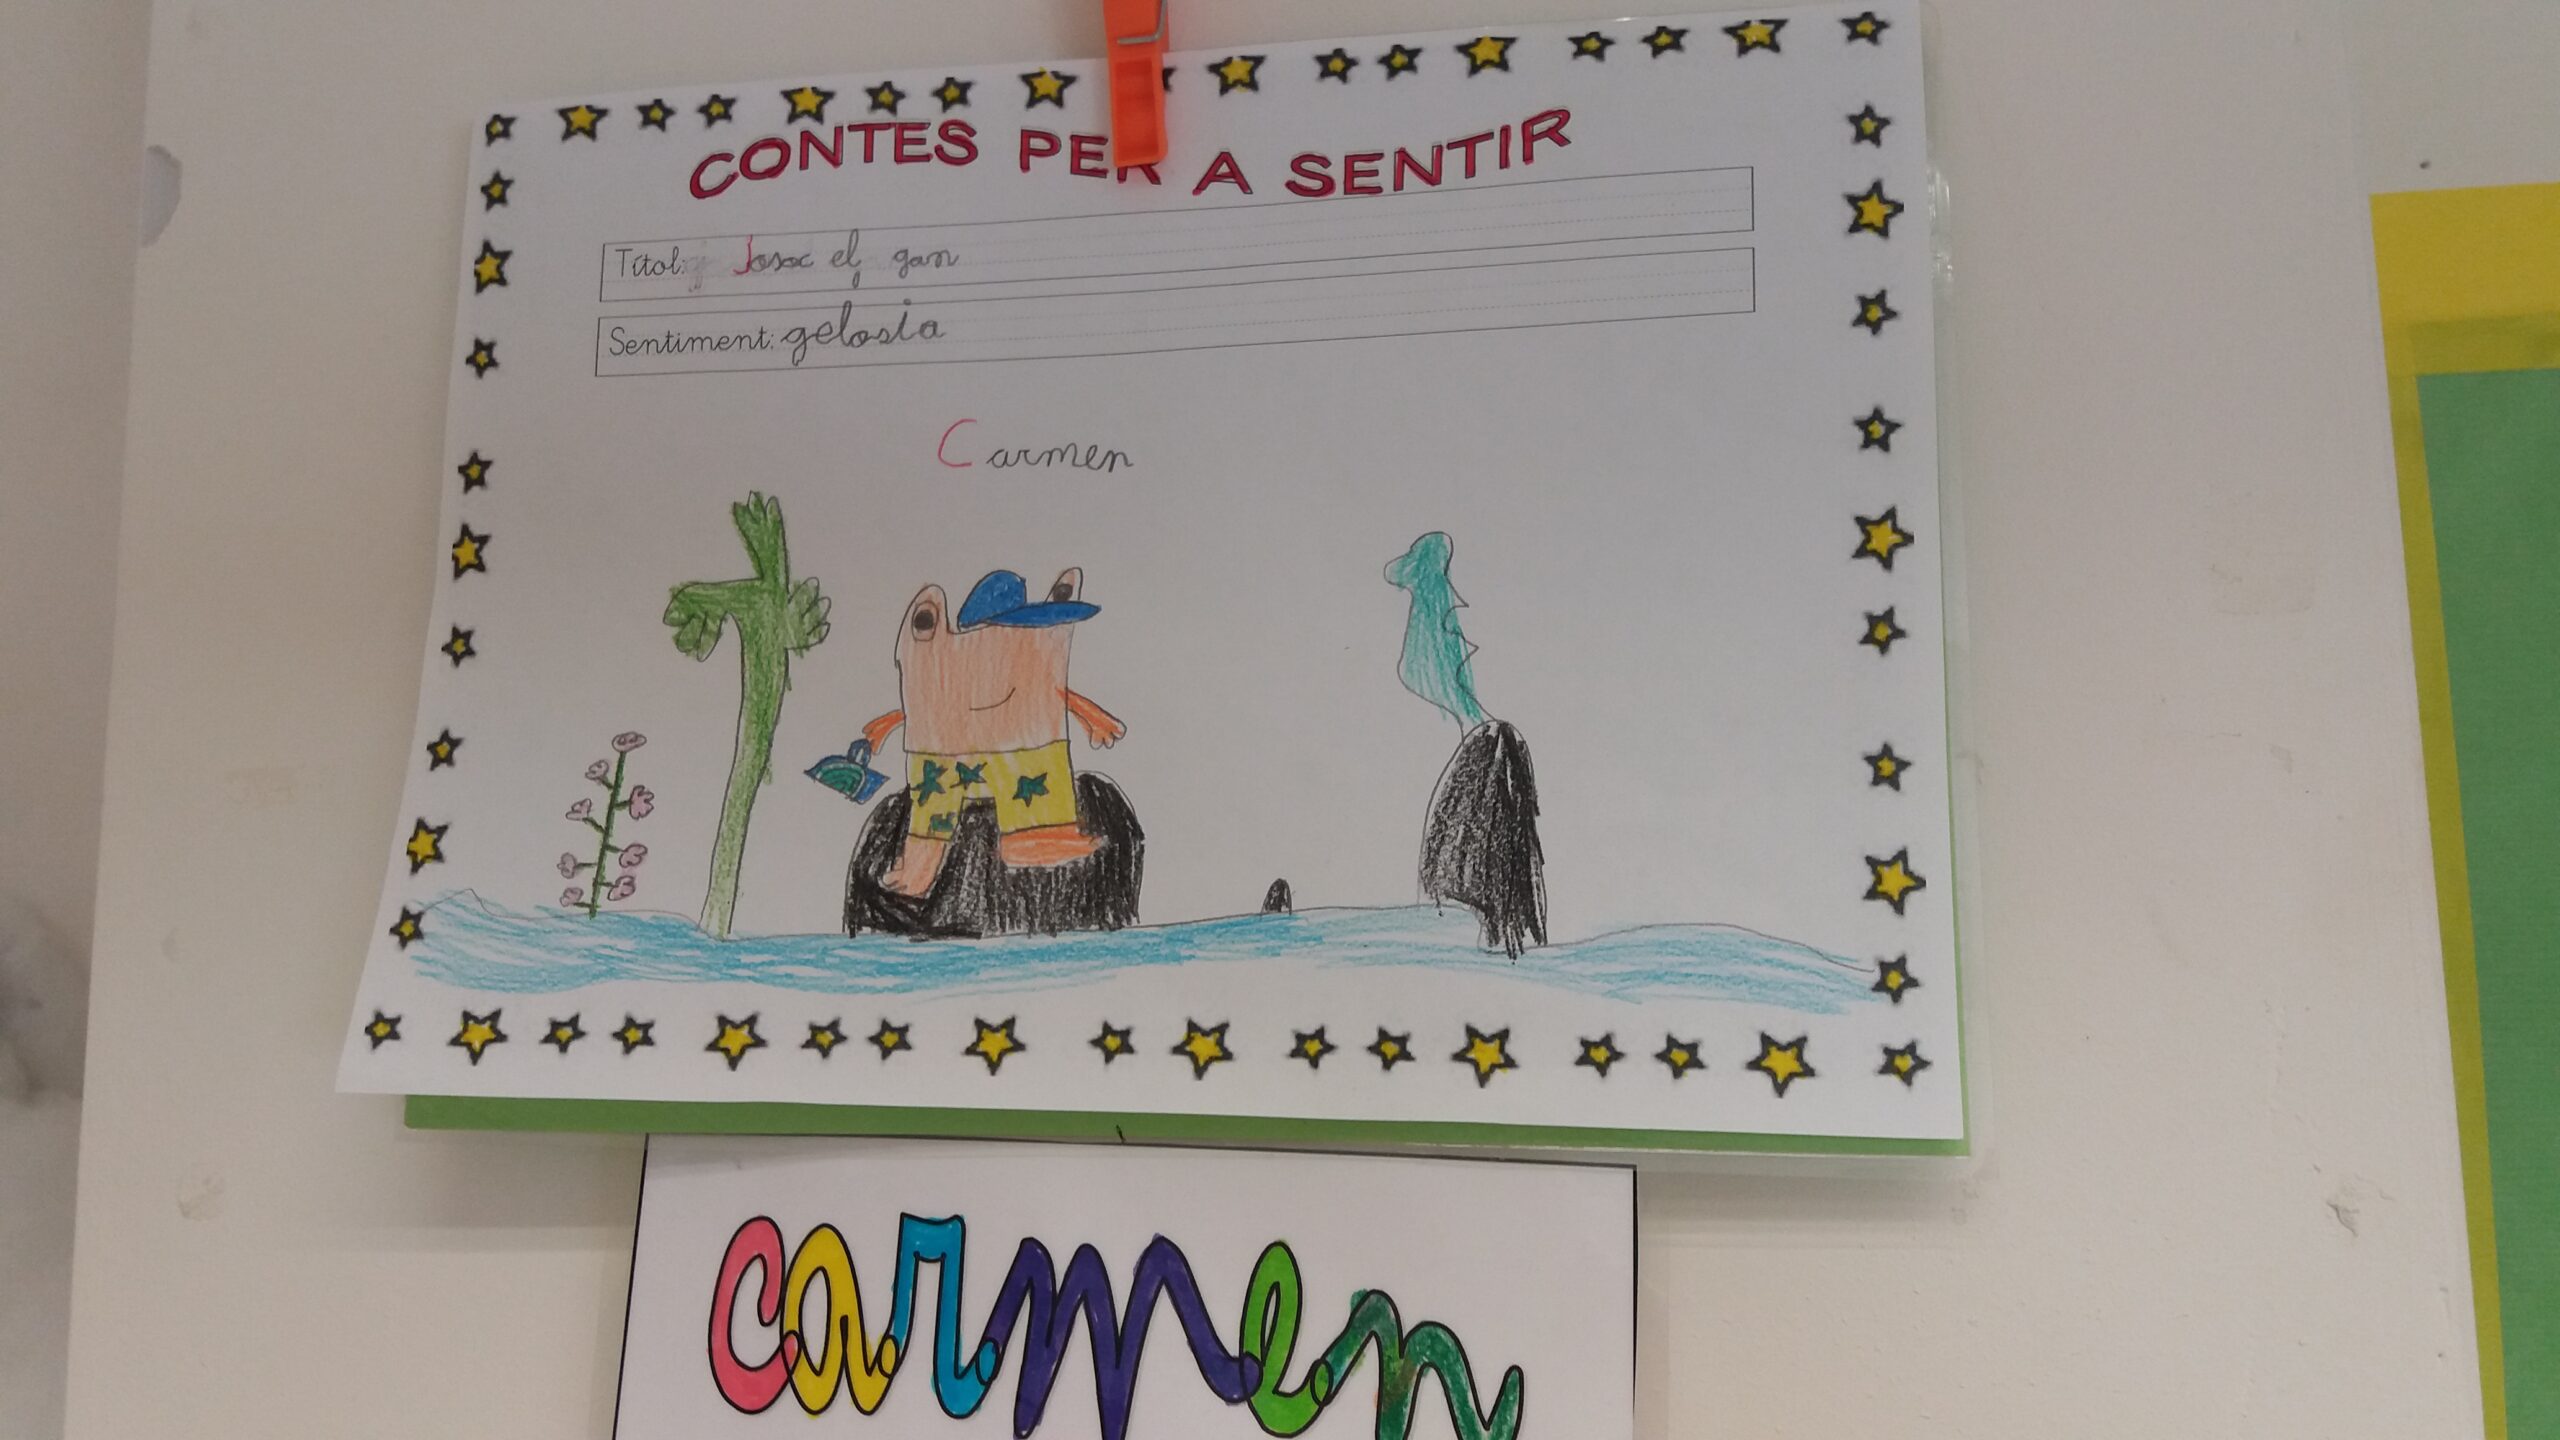 CONTES PER A SENTIR
Títol: Josoc el gan
Sentiment: gelosia
Carmen
carmen